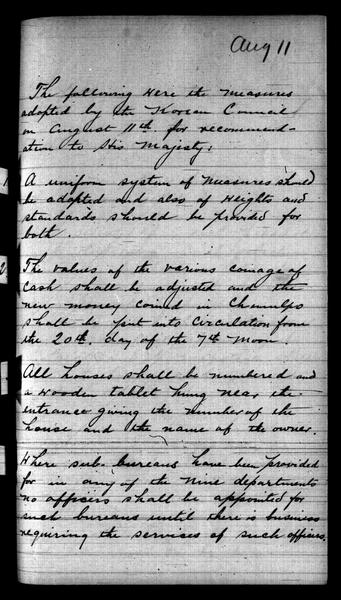 Aug 11
The following were the measures
adopted by the Korean Council
on August 11th for recommend-
ation to His Majesty:
A uniform system of measures should
be adopted and also of Heights and
standards should be provided for
both.
The values of the various coinage of
cash shall be adjusted and the
new money coined in Chemulpo
shall be put into circulation from
the 20th. day of the 7th Moon.
All houses shall be numbered and
a wooden tablet hung near the
entrance giving the number of the
house and the name of the owner.
Where sub-bureaus have been provided
for in any of the nine departments
no officers shall be appointed for
such bureaus until there is business
requiring the services of such officers.